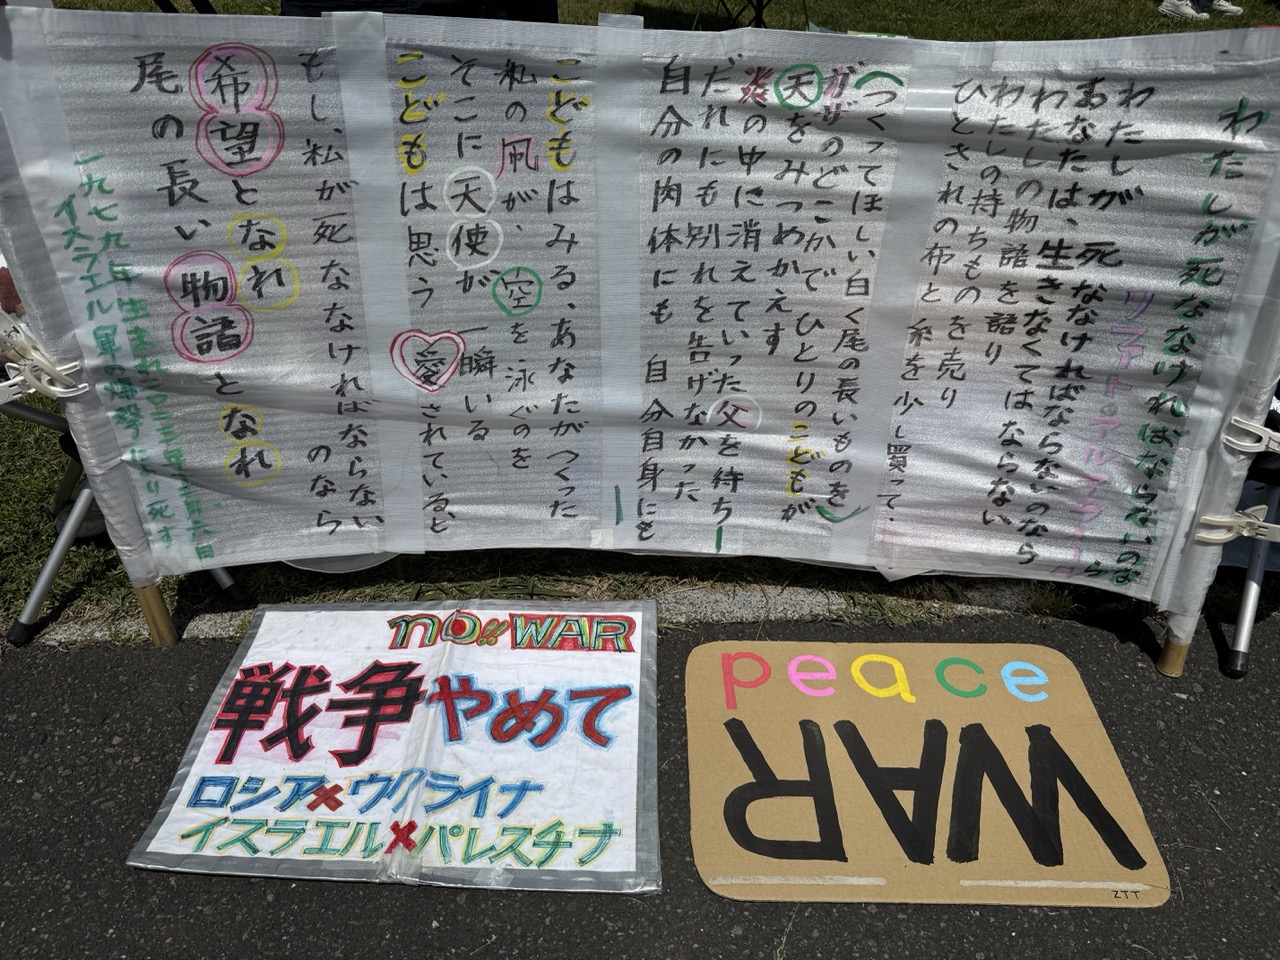 わたしが死ななければならないのなら
リファト・アルアライール
わたしが 死ななければならないのなら
あなたは、生きなくてはならない
わたしの物語を語り
わたしの持ちものを売り
ひときれの布と 糸を少し買って、
(つくってほしい 白く尾の長いものを)
ガザのどこかで ひとりのこどもが
天をみつめかえす
炎の中に消えていった父を待ち―
だれにも別れを告げなかった
自分の肉体にも 自分自身にも―
こどもはみる、あなたがつくった
私の凧が、空を泳ぐのを
そこに天使が 一瞬いる
こどもは思う 愛されていると
もし、私が死ななければならない のなら
希望となれ
尾の長い物語となれ
一九七九年生まれ二〇二三年十二月六日
イスラエル軍の爆撃により死す
no!! WAR
戦争やめて
ロシア×ウクライナ
イスラエル×パレスチナ
peace
WAR
ZTT